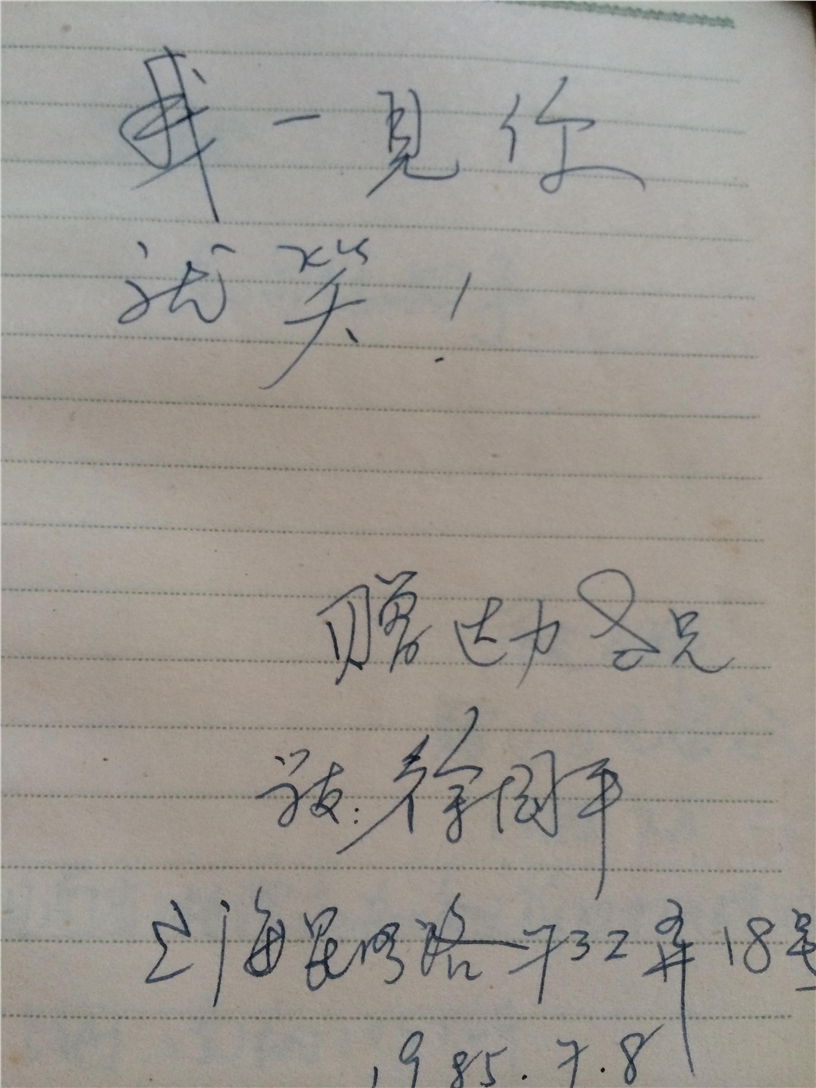 我一見你
就笑！
赠达力学兄
诗友：徐国平
上海昆明路732弄18号
1985.7.8